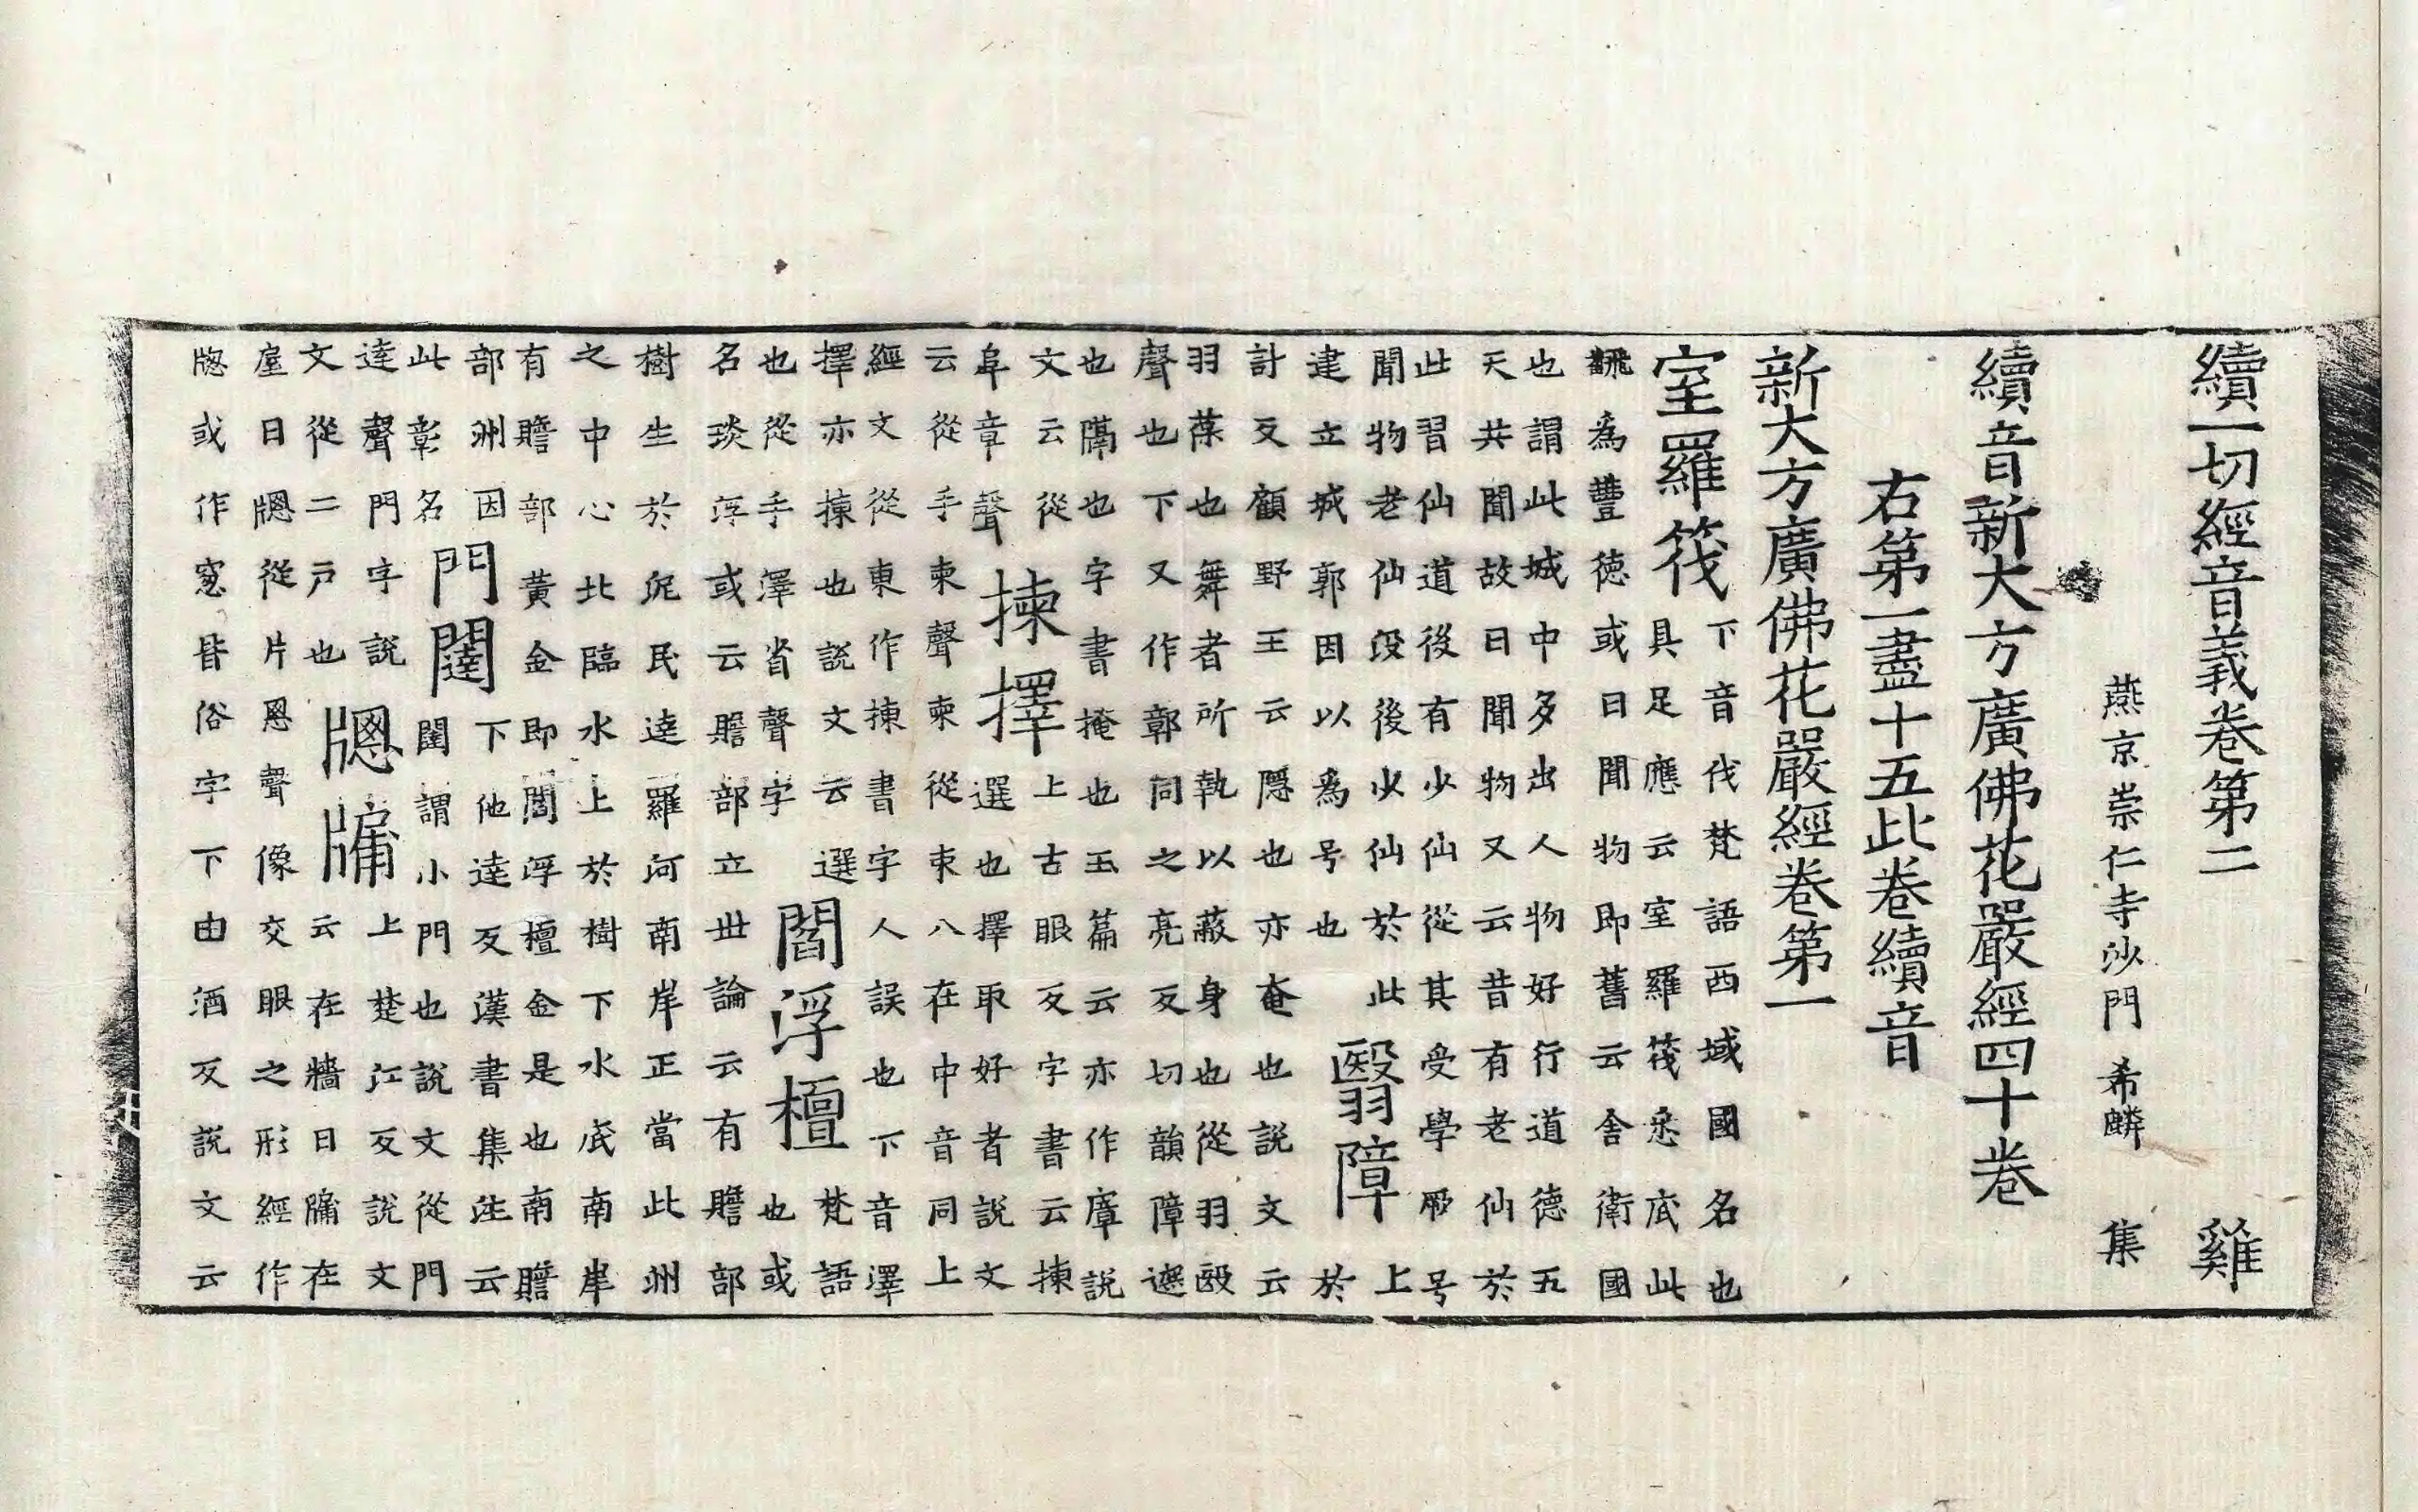 續一切經音義卷第二 雞
燕京崇仁寺沙門 希麟 集
續音新大方廣佛花嚴經四十卷
右第一盡十五此卷續音
新大方廣佛花嚴經卷第一
室羅筏 下音伐梵語西域國名也
具足應云室羅筏悉底此
飜為豐德或曰聞物即舊云舍衛國
也謂此城中多出人物好行道德五
天共聞故曰聞物又云昔有老仙於
此習仙道後有少仙從其受學厥号
聞物老仙歿後少仙於此
建立城郭因以為号也
翳障 上
於
計反顧野王云隱也亦奄也說文云
羽葆也舞者所執以蔽身也從羽殹
聲也下又作鄣同之亮反切韻障遮
也隔也字書掩也玉篇云亦作㢓說
文云從
阜章聲
揀擇 上古眼反字書云揀
選也擇取好者說文
云從手柬聲柬從束八在中音同上
經文從東作揀書字人誤也下音澤
擇亦揀也說文云選
也從手澤省聲字
閻浮檀 梵語
也或
名琰浮或云贍部立世論云有贍部
樹生於泥民達羅河南岸正當此洲
之中心北臨水上於樹下水底南岸
有贍部黃金即閻浮檀金是也南贍
部洲因
此彰名
門闥 下他達反漢書集注云
闥謂小門也說文從門
達聲門字說
文從二戶也
牎牖 上楚江反說文
云在牆曰牖在
屋曰牎從片悤聲像交眼之形經作
牕或作窓皆俗字下由酒反說文云